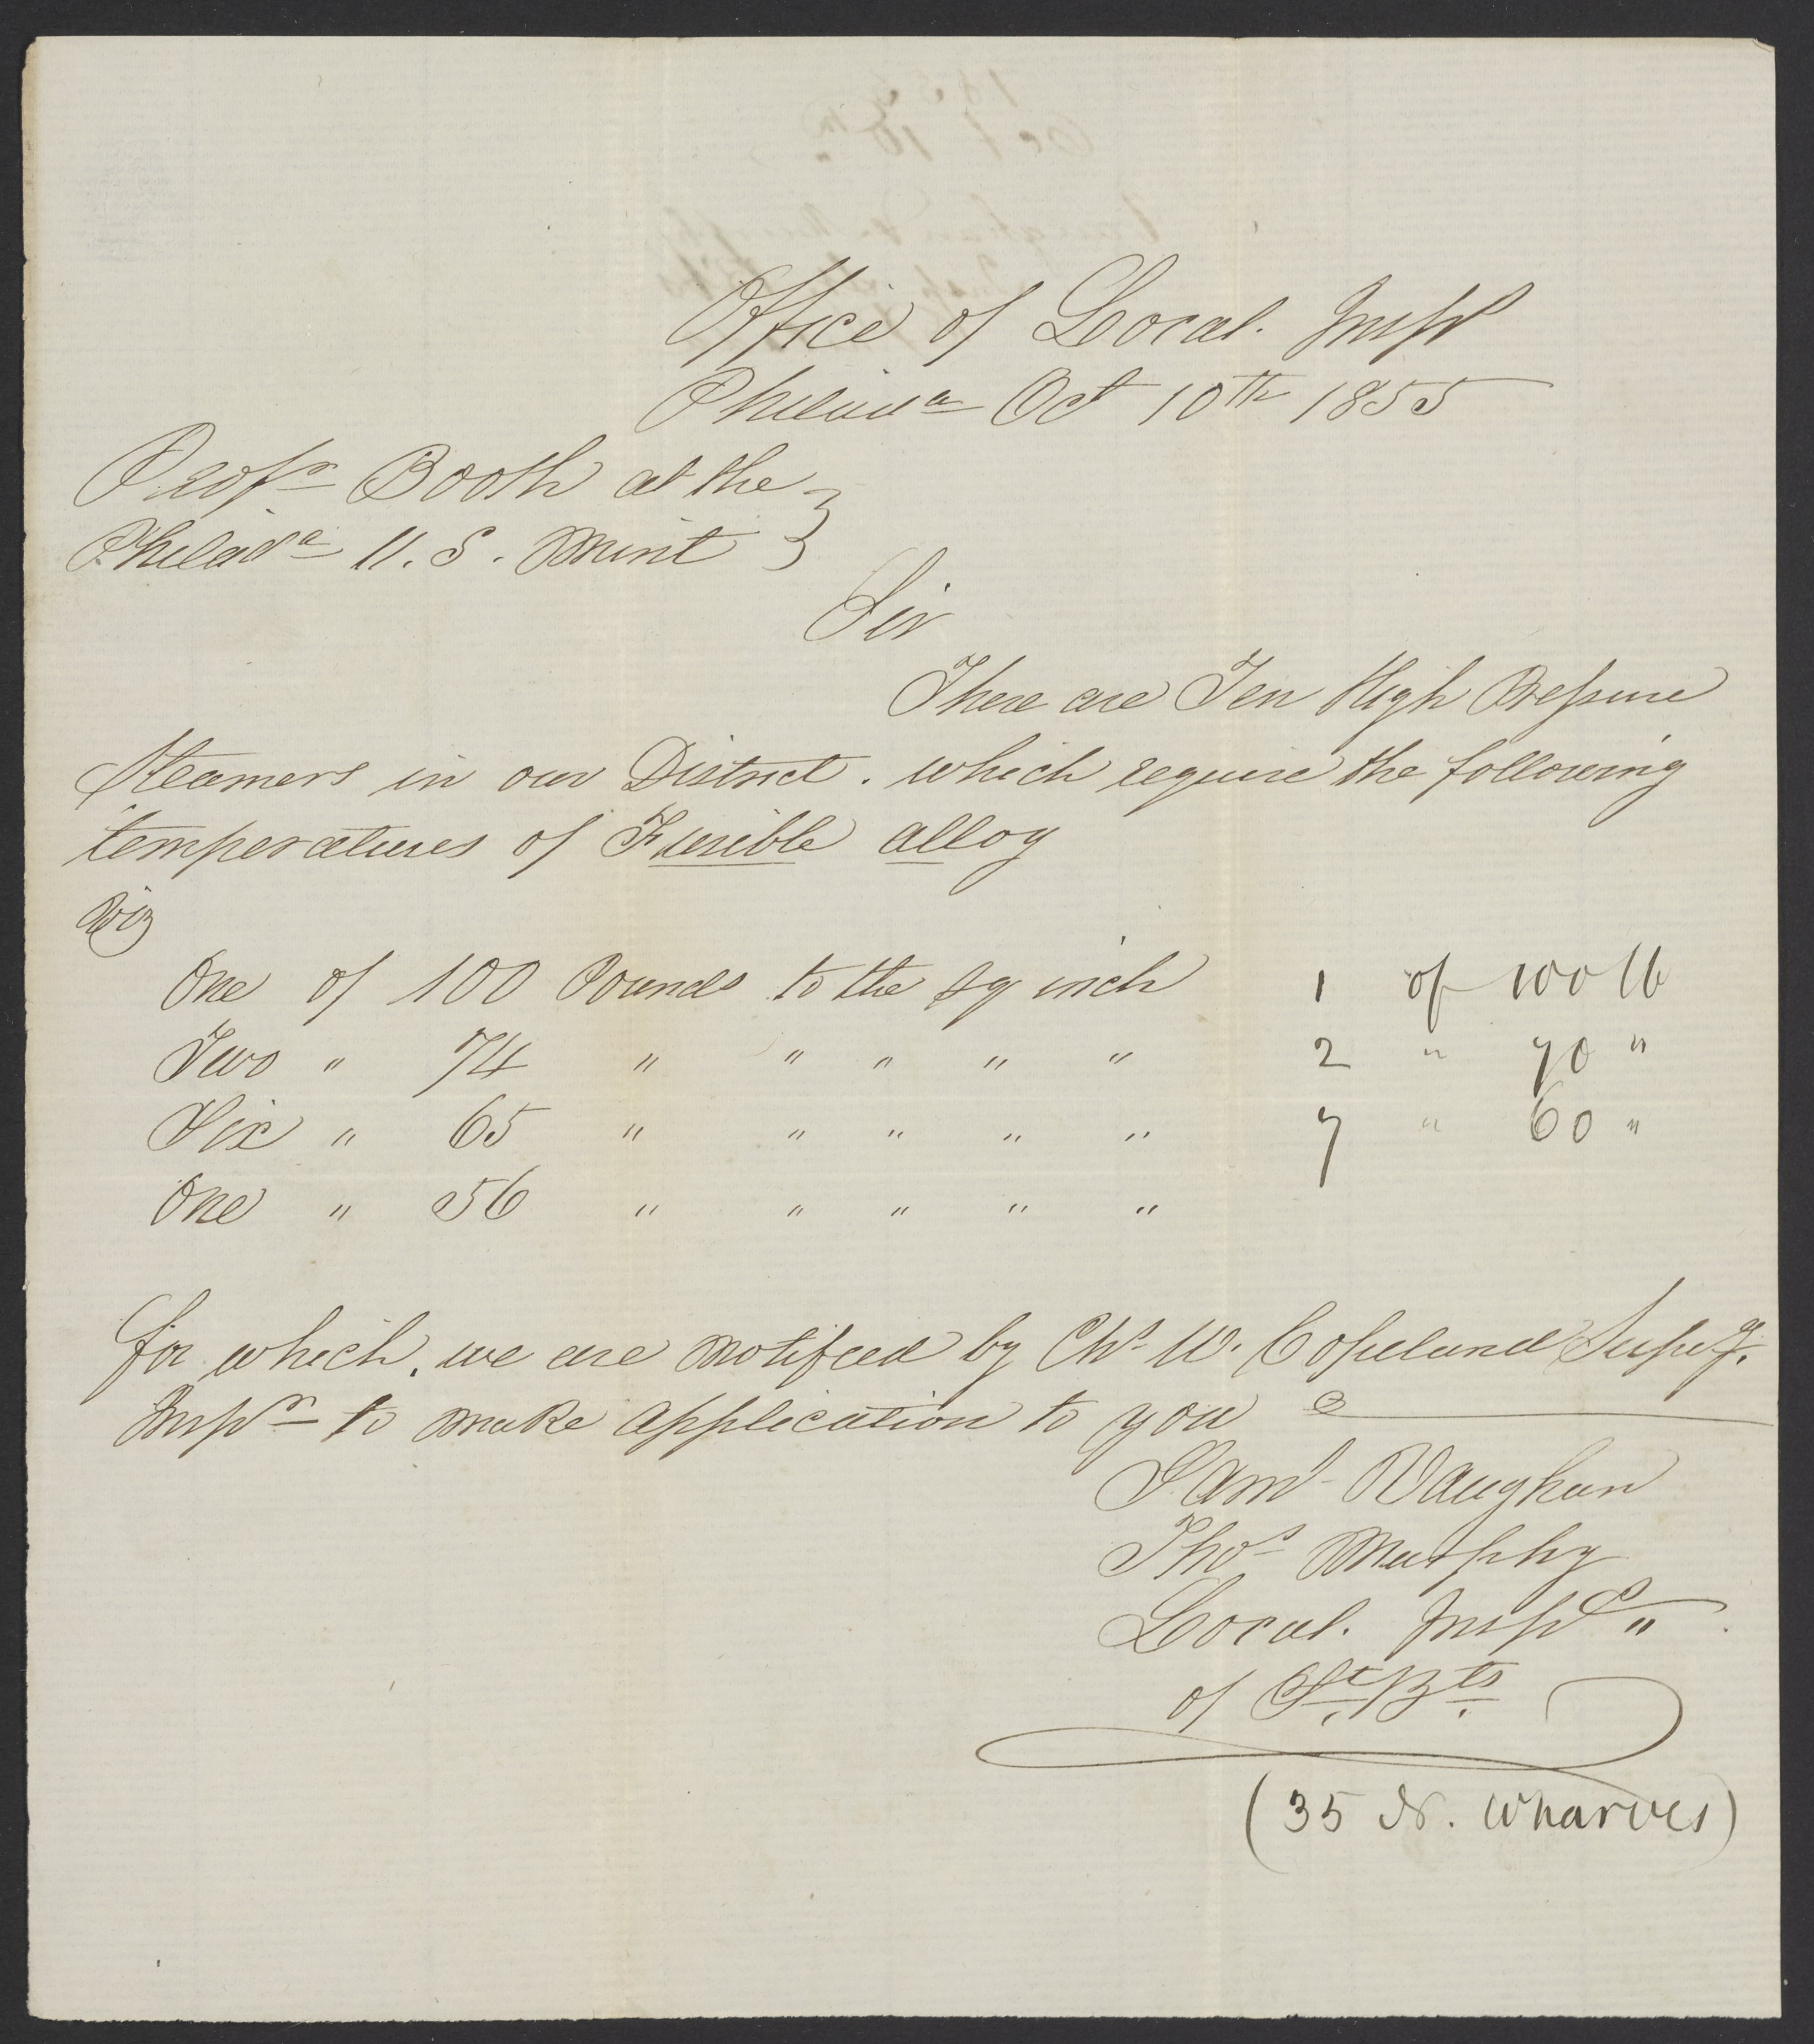 Office of Local. Inspr
Philada Oct 10th 1855
Profr Booth at the
Philada U.S. Mint
Sir
There are Ten High Pressure
Steamers in our District. which require the following
temperatures of Fusible alloy
Viz
One of 100 Pounds to the sq inch 1 of 100 lb
Two " 74 " " " " " 2 " 70 "
Six " 65 " " " " " 7 " 60 "
One " 56 " " " " "
for which, we are notified by Chs W. Copeland Supeg.
Inspr to make application to you
Saml Vaughan
Thos Murphy
Local. Insprs "
of St. Bts.
(35 N. Wharves)